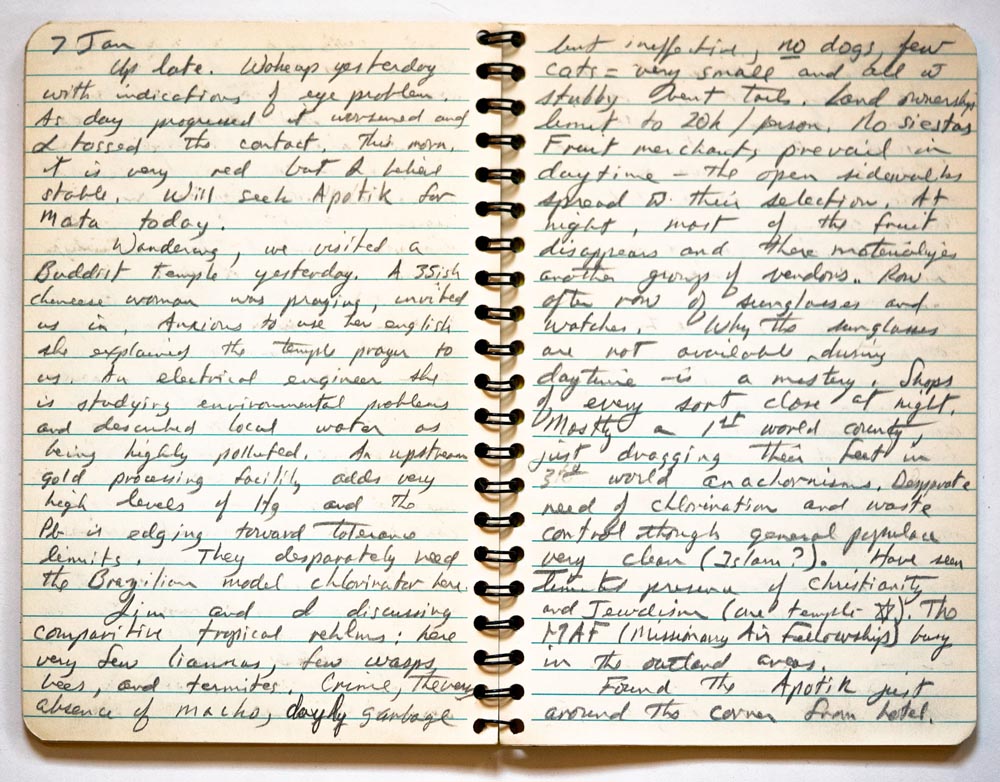 7 Jan
Up late. Woke up yesterday
with indications of eye problem.
As day progressed it worsened and
I tossed the contact. This morn.
it is very red but I believe
stable. Will seek Apotik for
Mata today.
Wandering, we visited a
Buddist temple yesterday. A 35ish
cheneese woman was praying, invited
us in, Anxious to use her english
she explained the temple prayer to
us. An electrical engineer she
is studying environmental problems
and described local water as
being highly polluted. An upstream
gold processing facility adds very
high levels of Hg and the
Pb is edging toward tolerance
lemmits. They desparately need
the Brazilian model chlorinator here.
Jim and I discussing
comparitive tropical rehlms: here
very few liannas, few wasps,
bees, and termites. Crime, Thevery
absence of macho, dayly garbage
but ineffective, no dogs, few
cats = very small and all w
stubby bent tails. Land ownership
limit to 20h/person. No siestas
Fruit merchants prevail in
daytime - the open sidewalks
spread w their selection. At
night, most of the fruit
disappears and there materialijes
another group of vendors. Row
after row of sunglasses and
watches. Why the sunglasses
are not available during
daytime is a mastery. Shops
of every sort close at night.
Mostly a 1st world county,
just dragging their feet in
3rd world anachornisms. Desparate
need of chlorination and waste
control though general populace
very clean (Islam?). Have seen
limited presence of Christianity
and Jewdism (one temple ✡) The
MAF (Missionary Air Fellowship) busy
in the outland areas.
Found the Apotik just
around the corner from hotel.